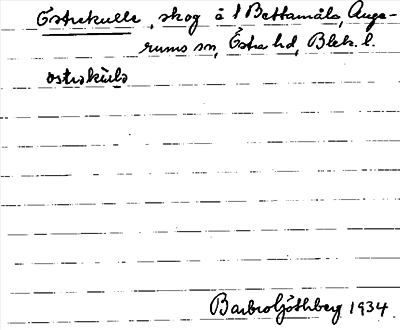 Östrekulle, skog å 1 Bettamåla, Auge-
rums sn, Östra hd, Blek. l.
östrəkùlə
Barbro Göthberg 1934.